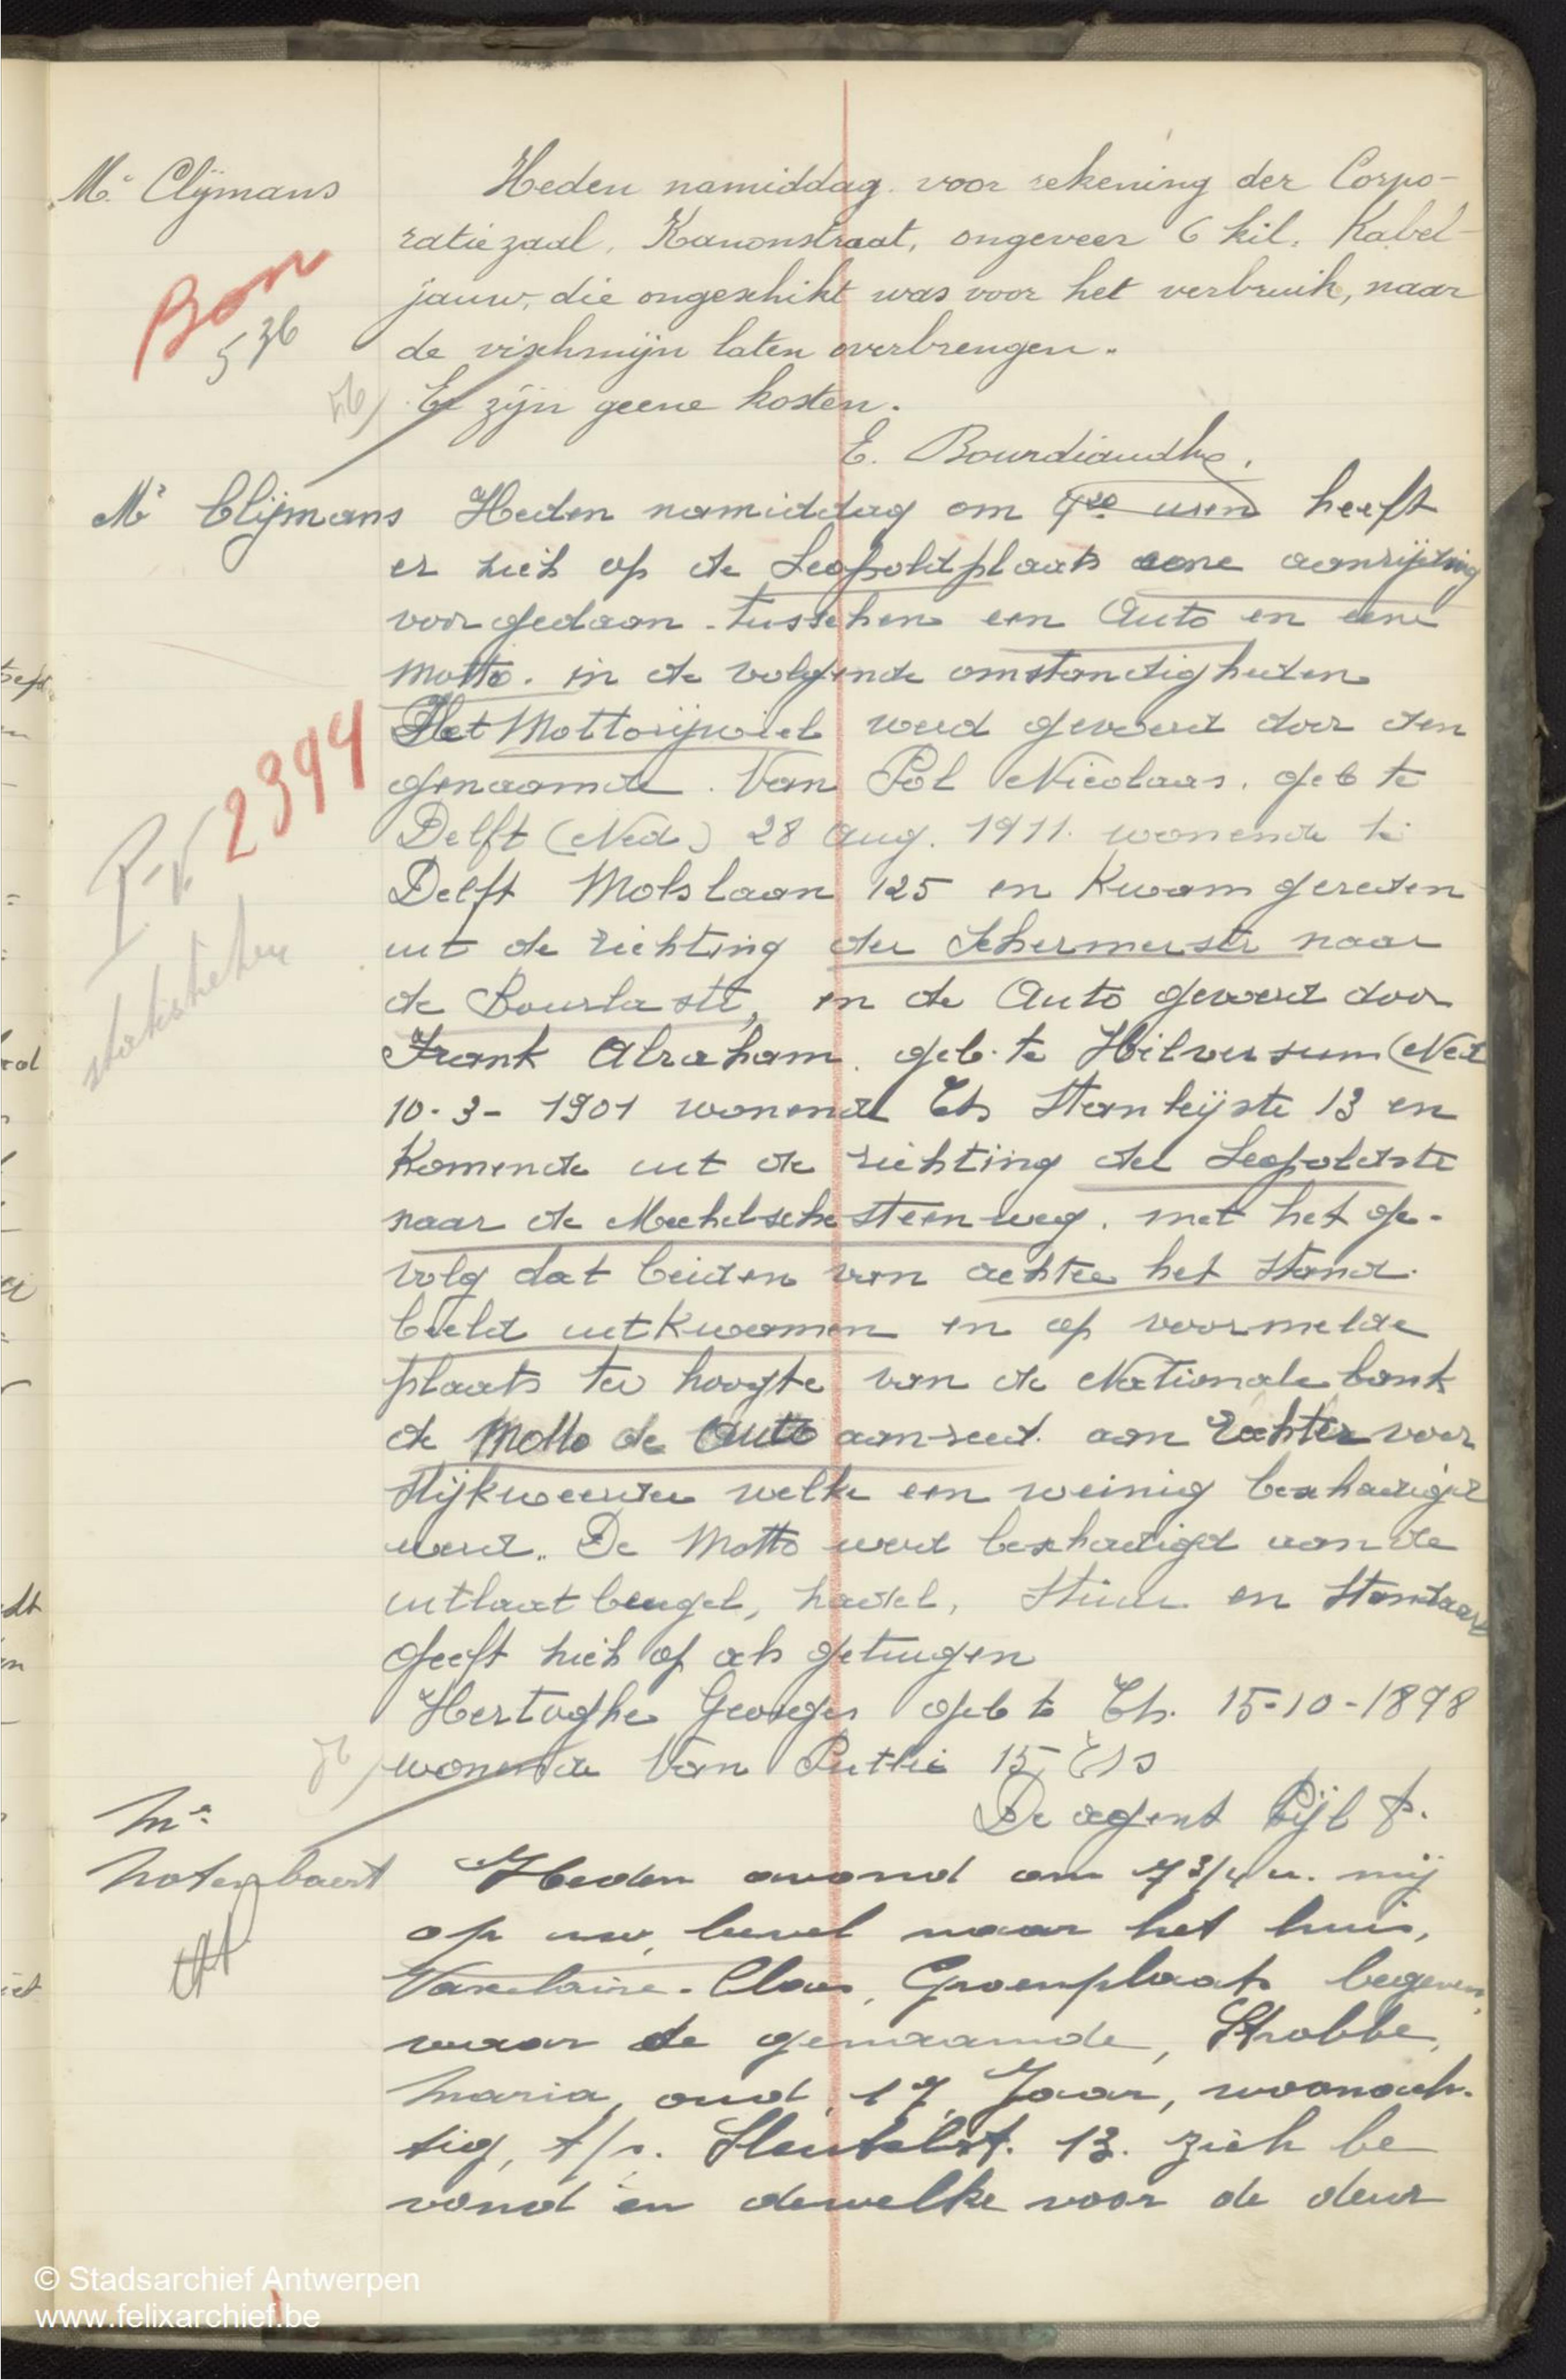 Mr Clijmans
Heden namiddag voor rekening der Corpo-
ratiezaal, Kanonstraat, ongeveer 6 kil. Kabel-
jauw, die ongeschikt was voor het verbruik, naar
de vischmijn laten overbrengen.
Er zijn geene kosten.
Bon
536
E. Bourdiaudhy.
Mr Clijmans
Heden namiddag om uren heeft
er zich op de Leopoldplaats eene aanrijding
voorgedaan tusschen een Auto en eene
Motto. in de volgende omstandigheden
Het Mottorijwiel werd gevoerd door den
genaamde. Van Pol Nicolaas. geb te
Delft (Ned.) 28 Aug. 1911. wonende te
Delft Molslaan 125 en Kwam gereden
uit de richting der Schermerstr naar
de Bourlastr, en de Auto gevoerd door
Frank Abraham. geb. te Hilversum (Ned
10-3-1901 wonend Ts 13 en
Komende uit de richting der Leopoldstr
naar de Mechelschesteenweg. met het ge-
volg dat beiden van achter het stand-
beeld uitkwamen en op voormelde
plaats ter hoogte van de Nationale bank
de Motto de Auto aanreed. aan rechter voor
slijkweerder welke een weinig beschadigd
werd. De Motto werd beschadigd aan de
uitlaat beugel, hadel, stuur en Standaard
Geeft zich op als getuigen
Hertoghe Georges geb te Ts. 15-10-1898
wonende Van 15 Ts
De agent Pijl P.
P.V. 2394
Mr.
Noterbaert
Heden avond om 7 3/4 u. mij
op uw bevel naar het huis,
Vaxelaire-Claes, Groenplaats begeven,
waar de genaamde, Strobbe,
Maria, oud, 17 Jaar, woonach-
tig, t/s. Sleutelst. 13. zich be
vond en dewelke voor de deur
© Stadsarchief Antwerpen
www.felixarchief.be